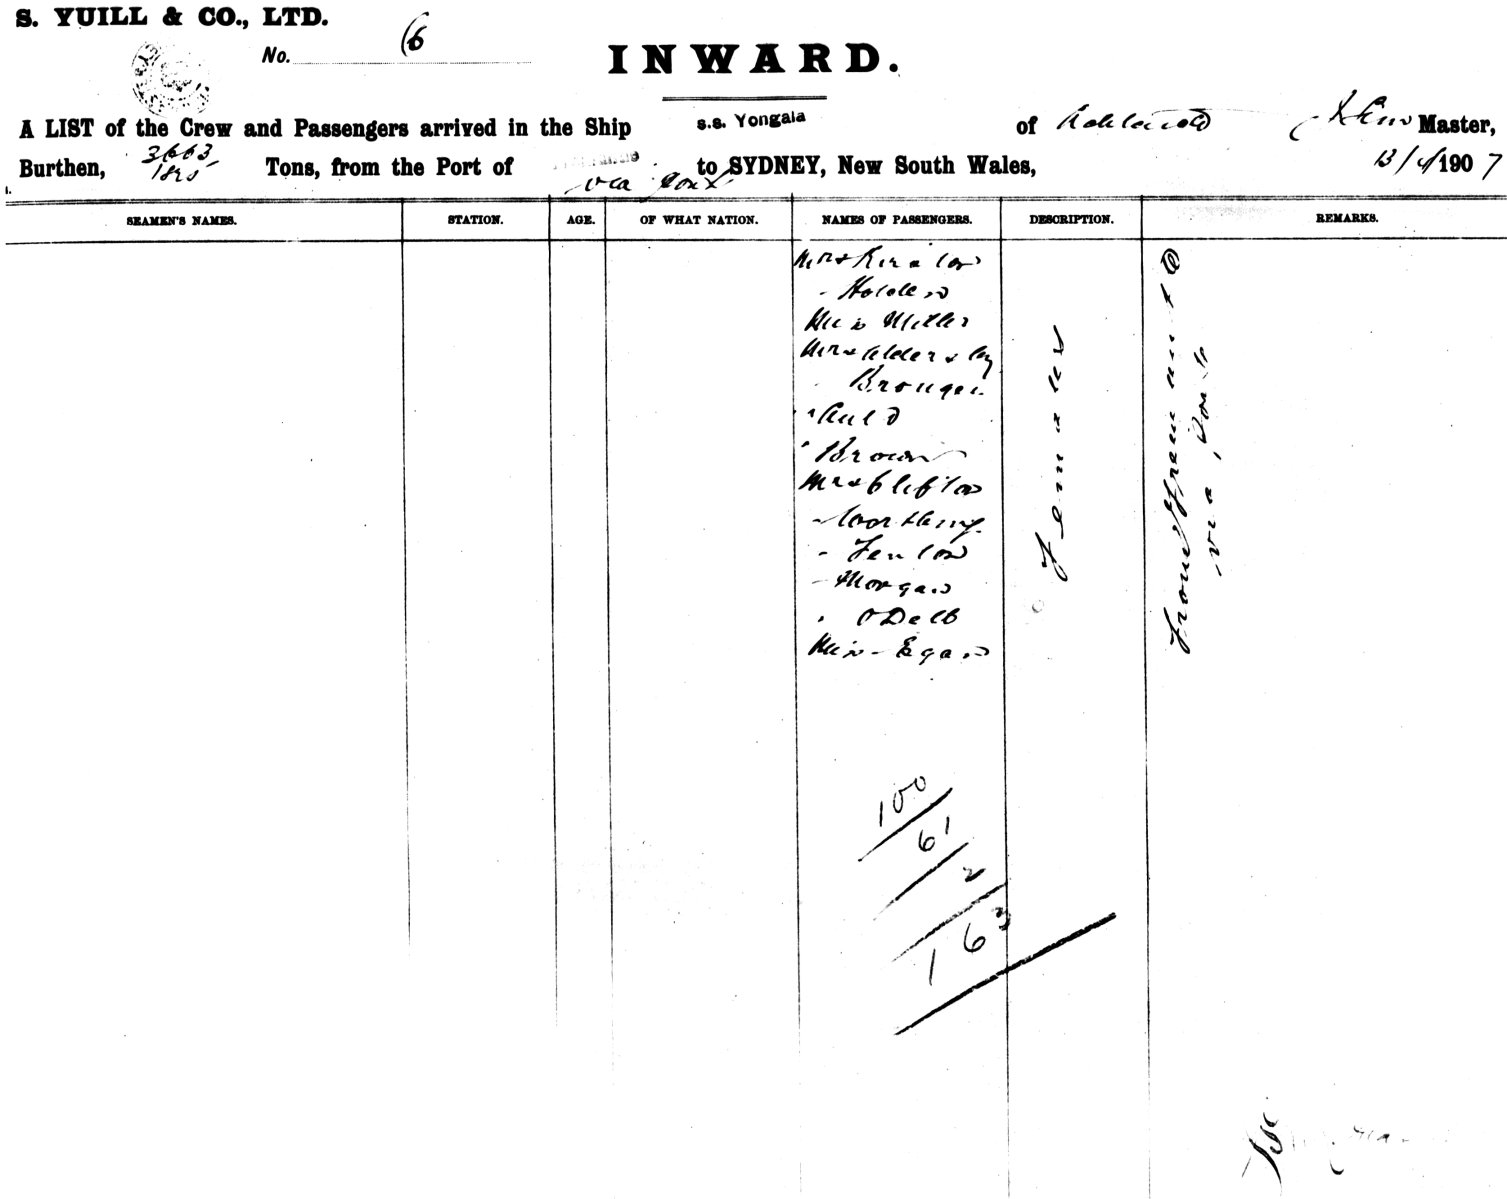 S. YUILL & CO., LTD.
No. 6
INWARD.
A LIST of the Crew and Passengers arrived in the Ship s.s. Yongala of Adelaide Master,
Burthen, 3663 1825 Tons, from the Port of via ports to SYDNEY, New South Wales, 13/4/1907
SEAMEN'S NAMES. STATION. AGE. OF WHAT NATION. NAMES OF PASSENGERS. DESCRIPTION. REMARKS.
Mrs
" Holden
Miss Miller
Mrs Aldersley
" Auld
" Brown
Mrs Clifton
" Fenton
" Morgan
" O Dell
Miss Egan
Females
From Fremantle
via Ports
100
61
2
163